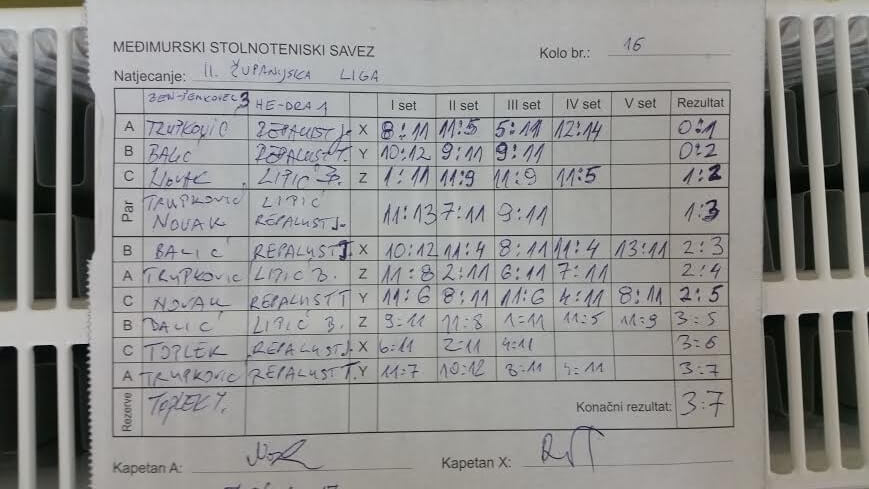 MEĐIMURSKI STOLNOTENISKI SAVEZ Kolo br.: 16
Natjecanje: II. ŽUPANIJSKA LIGA
3 HE-DRA 1 I set II set III set IV set V set Rezultat
A TRUPKOVIĆ REPALUST J. X 8:11 11:5 5:11 12:14 0:1
B BALIĆ REPALUST T. Y 10:12 9:11 9:11 0:2
C NOVAK LIPIĆ B. Z 1:11 11:9 11:9 11:5 1:2
Par TRUPKOVIĆ LIPIĆ
NOVAK REPALUST J. 11:13 7:11 9:11 1:3
B BALIĆ REPALUST J. X 10:12 11:4 8:11 11:4 13:11 2:3
A TRUPKOVIC LIPIĆ B. Z 11:8 2:11 6:11 7:11 2:4
C NOVAK REPALUST T Y 11:6 8:11 11:6 4:11 8:11 2:5
B BALIĆ LIPIĆ B. Z 9:11 11:8 1:11 11:5 11:9 3:5
C TOPLEK REPALUST J. X 6:11 2:11 4:11 3:6
A TRUPKOVIC REPALUST T. Y 11:7 10:12 8:11 4:11 3:7
Rezerve TOPLEK T. Konačni rezultat: 3:7
Kapetan A: Kapetan X: